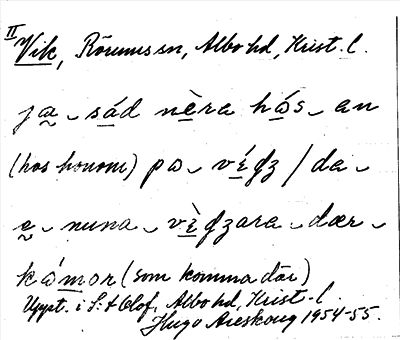 II
Vik, Rörums sn, Albo hd, Krist. l.
ja ˬ sád nèra hós ˬ an
(hos honom) pa ˬ végz / da ˬ
a ˬ nuna ˬ vègzara ˬ dær ˬ
kámor (som komma där)
Uppt. i S:t Olof, Albo hd, Krist. l.
Hugo Areskoug 1954-55.